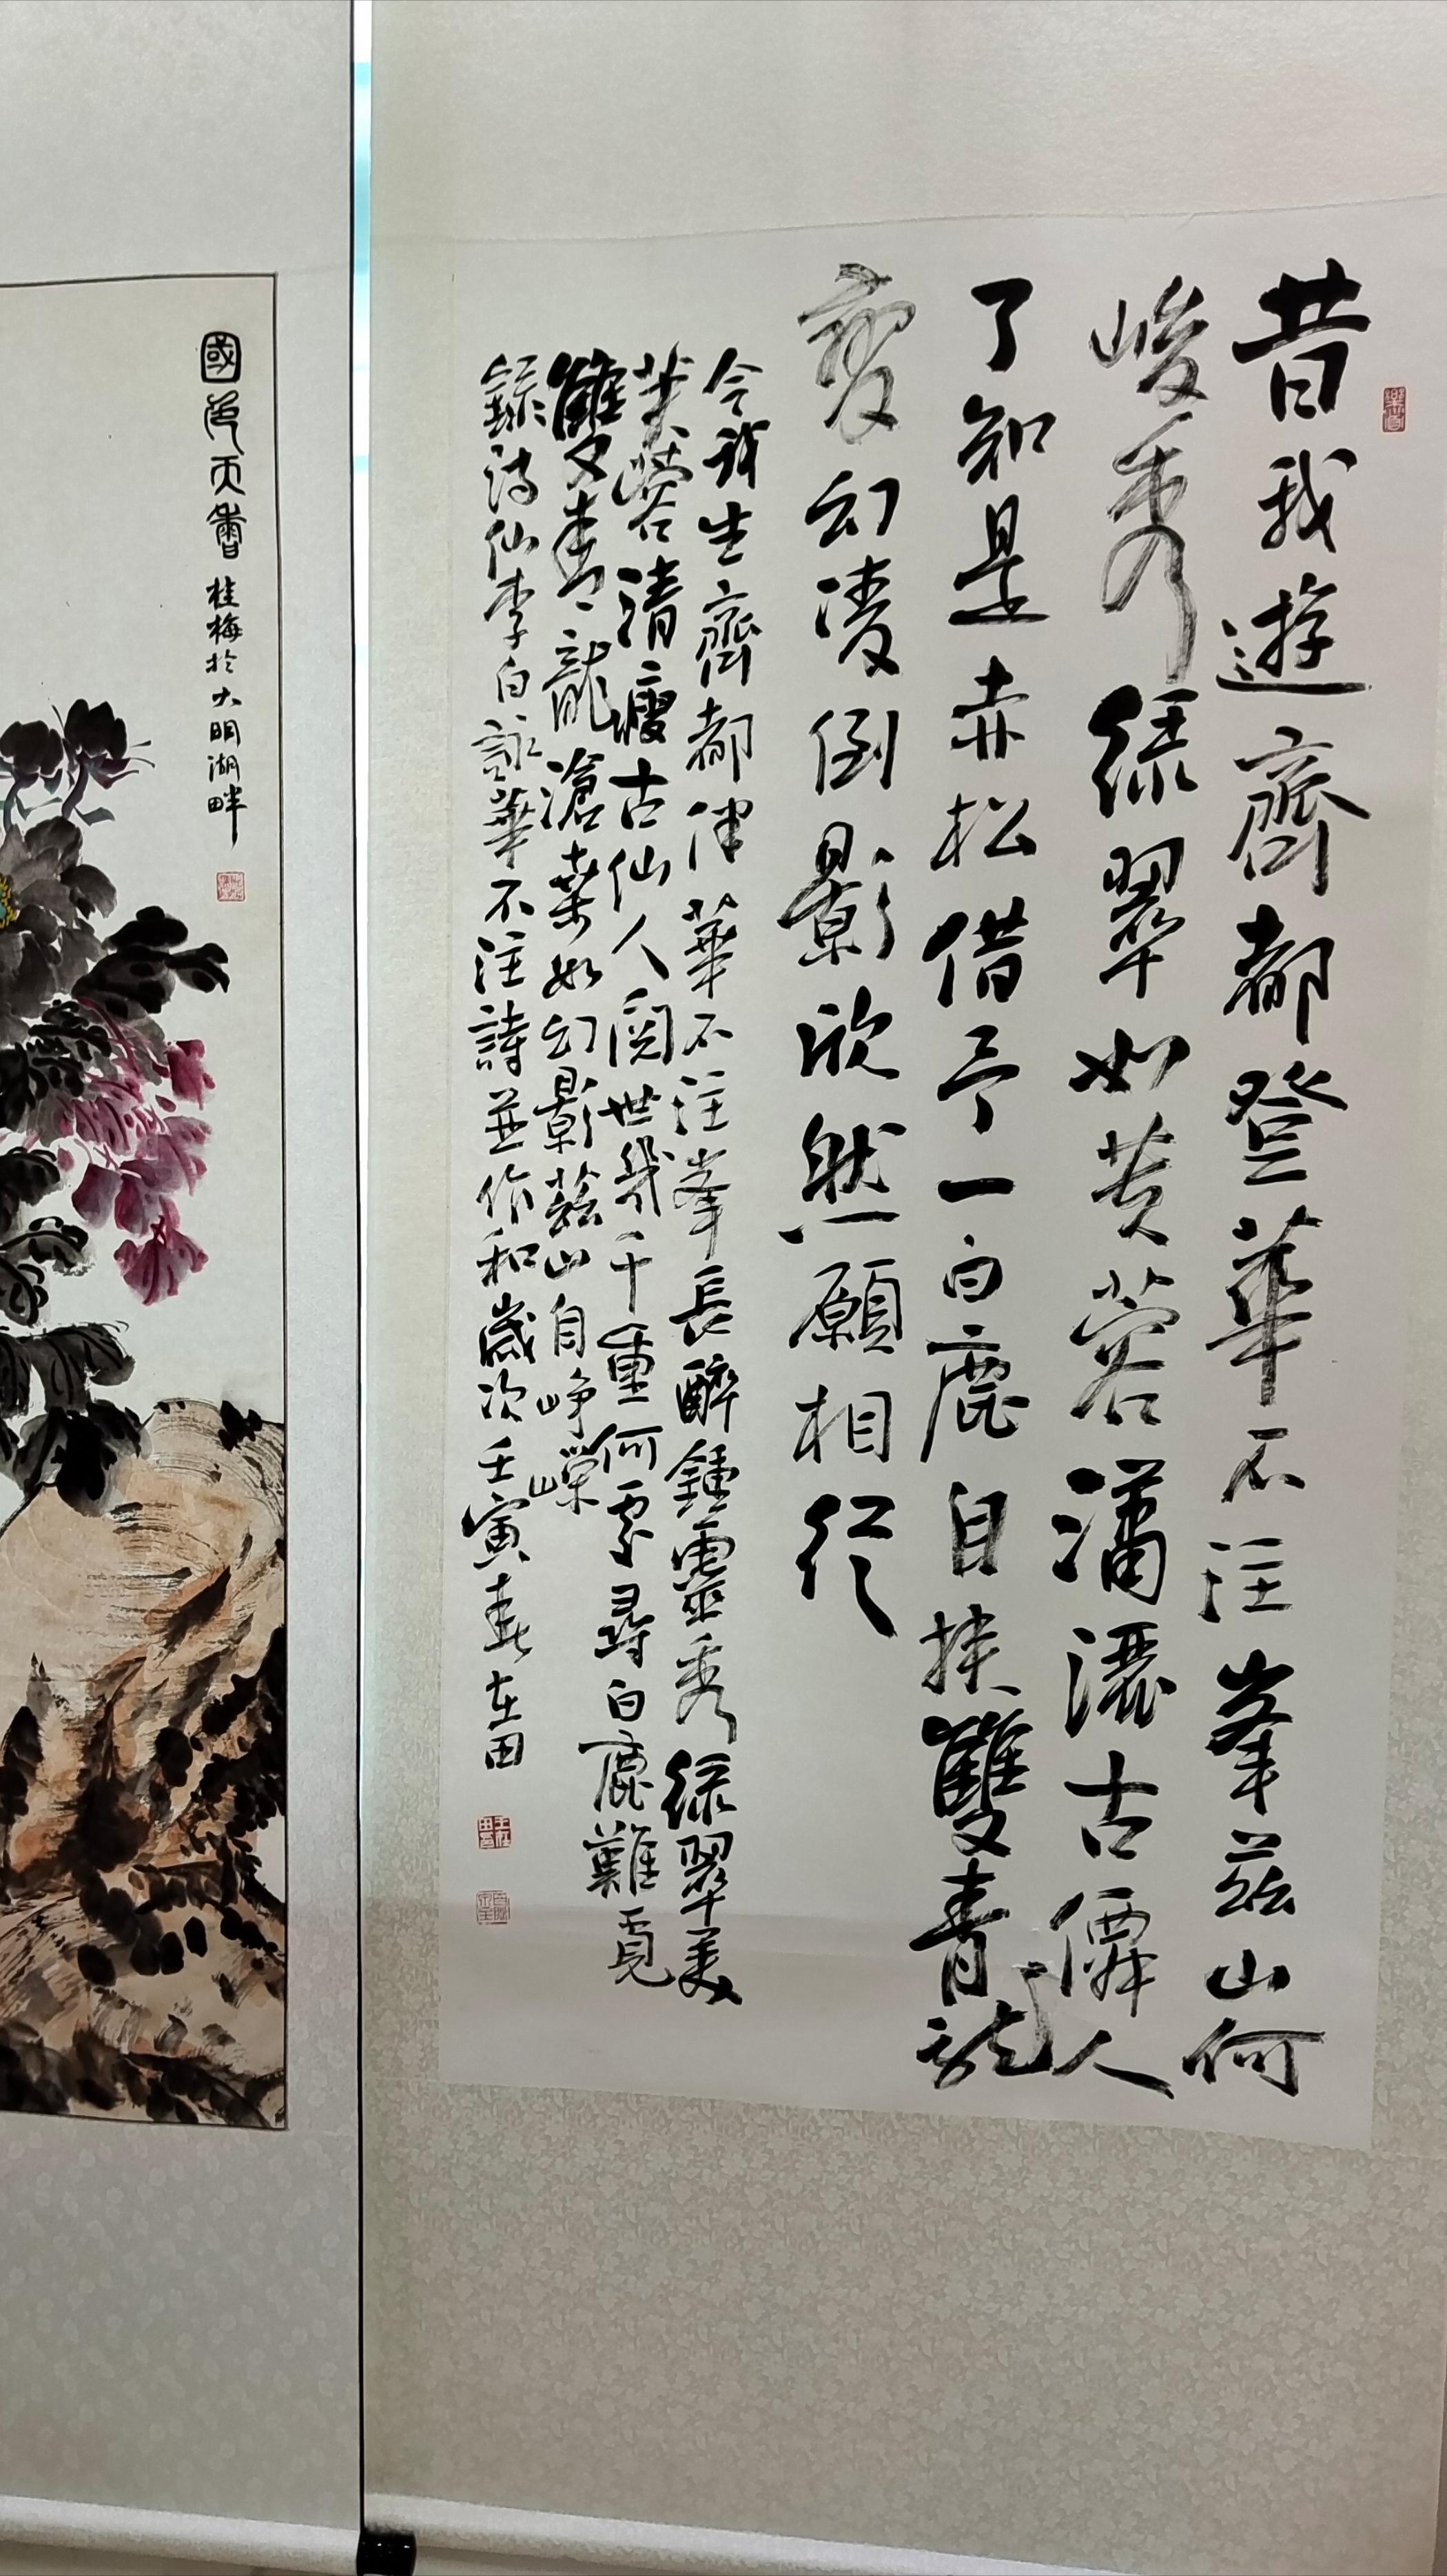 昔我遊齊都登華不注峯茲山何
峻秀綠翠如芙蓉瀟灑古僊人
了知是赤松借予一白鹿自挟雙青龍
变幻凌倒影欣然願相從
今我生齊都伴華不注峯長醉鍾靈秀綠翠美
芙蓉清癯古仙人閱世幾千重何處尋白鹿難覓
雙青龍滄桒如幻影茲山自崢嶸
錄詩仙李白詠華不注詩並作和歲次壬寅春在田
國色天香
桂梅於大明湖畔